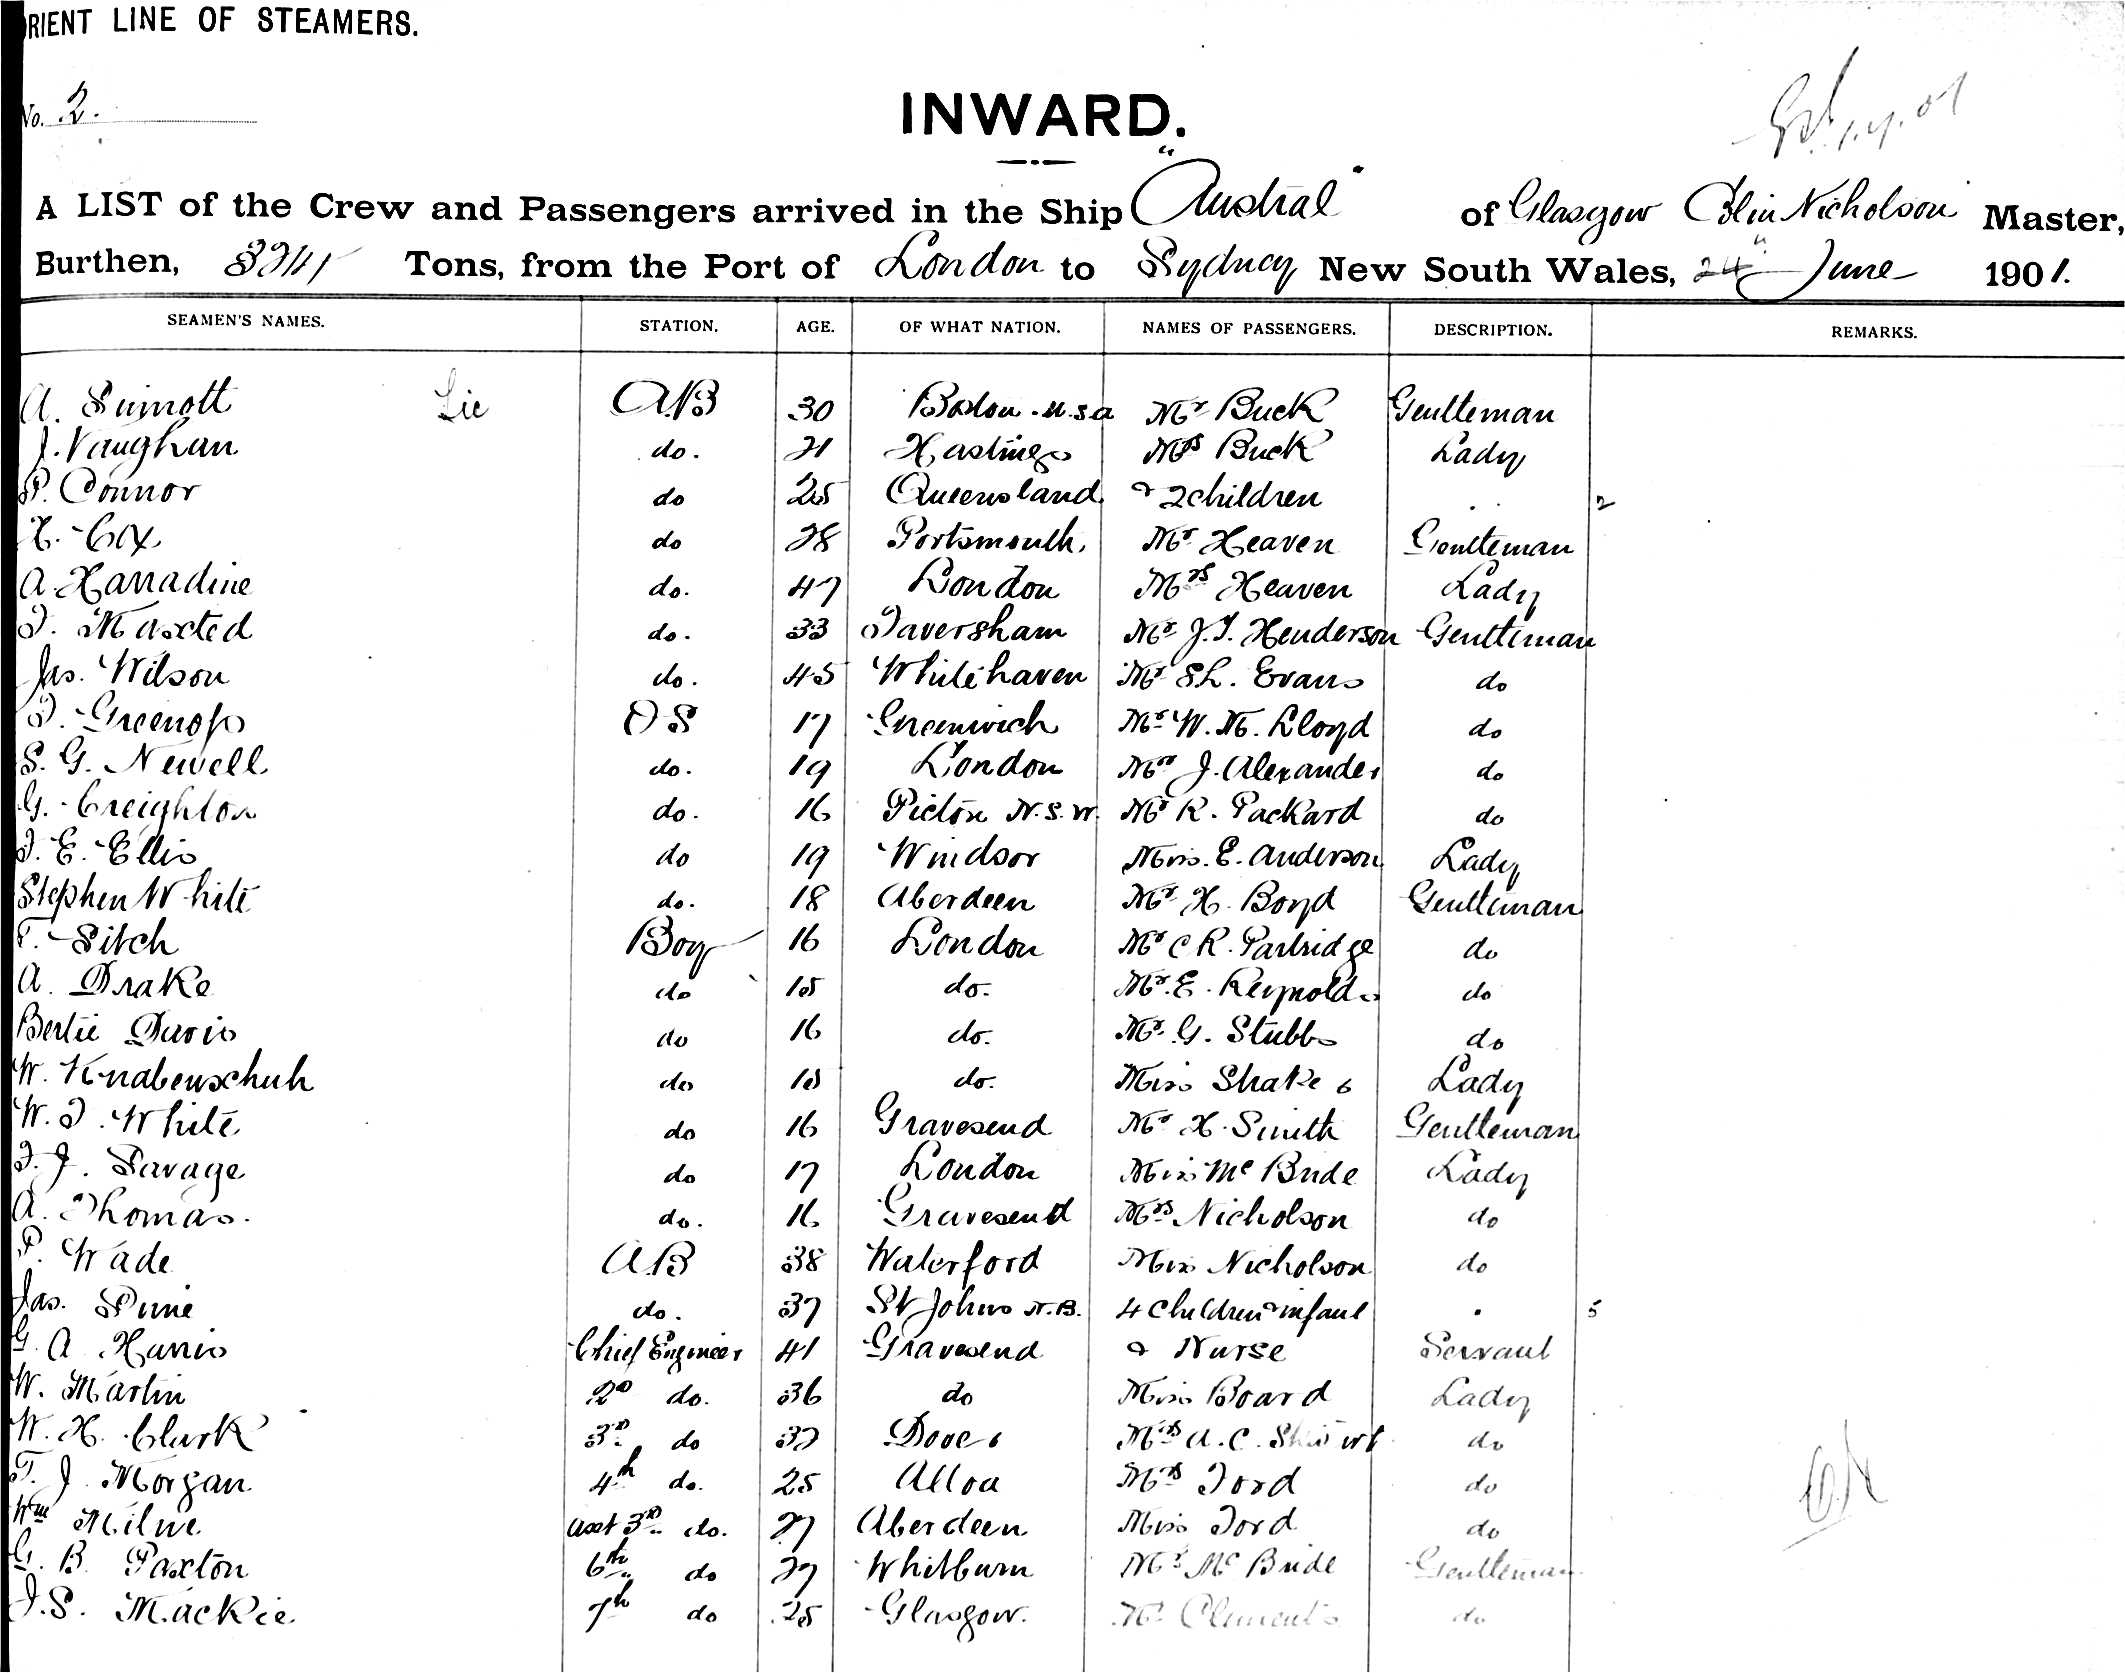 ORIENT LINE OF STEAMERS.
No. 2.
INWARD.
A LIST of the Crew and Passengers arrived in the Ship "Austral" of Glasgow Colin Nicholson Master,
Burthen, 3241 Tons, from the Port of London to Sydney New South Wales, 24" June 1901.
SEAMEN'S NAMES. STATION. AGE. OF WHAT NATION. NAMES OF PASSENGERS. DESCRIPTION. REMARKS.
A. Lic AB 30 Boston. U.S.A Mr Buck Gentleman
J. Vaughan do. 21 Hastings Mrs Buck Lady
P. Connor do 25 Queensland & 2 children 2
H. Cox do 28 Portsmouth. Mr Heaven Gentleman
A Harradine do. 47 London Mrs Heaven Lady
F. Maxted do. 33 Faversham Mr J. F. Henderson Gentleman
Jas. Wilson do. 45 Whitehaven Mr S L. Evans do
F. Greenop OS 17 Greenwich Mr W. M. Lloyd do
S. G. Newell do. 19 London Mr J. Alexander do
G. Creighton do. 16 Picton N.S.W. Mr R. Packard do
F. E. Ellis do 19 Windsor Miss. E. Anderson Lady
Stephen White do. 18 Aberdeen Mr H. Boyd Gentleman
T. Fitch Boy 16 London Mr C R. Partridge do
A. Drake do 15 do. Mr. E. Reynolds do
Bertie Davis do 16 do. Mr. G. Stubbs do
W. Knabenschuh do 15 do. Miss Shakes Lady
W. F. White do 16 Gravesend Mr H. Smith Gentleman
F. J. Savage do 17 London Miss McBride Lady
A. Thomas. do. 16 Gravesend Mrs Nicholson do
P. Wade AB 38 Waterford Miss Nicholson do
Jas. Pirie do. 37 St Johns N.B. 4 children & infant 5
G. A Harris Chief Engineer 41 Gravesend & Nurse Servant
W. Martin 2D do. 36 do Miss Board Lady
W. H. Clark 3D do 37 Dover Mrs A. C. Stewart do
T. J. Morgan 4th do. 25 Alloa Mrs Ford do
Wm Milne Asst 3D do. 27 Aberdeen Miss Ford do
G. B. Paxton 6th do 27 Whitburn Mr McBride Gentleman
J. S. Mackie 7th do 25 Glasgow. Mr Clements do